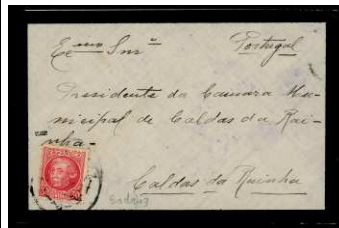 Exmo Snr Portugal
Presidente da Camara Mu-
nicipal de Caldas da Rai-
nha-
Caldas da Rainha
Badajoz